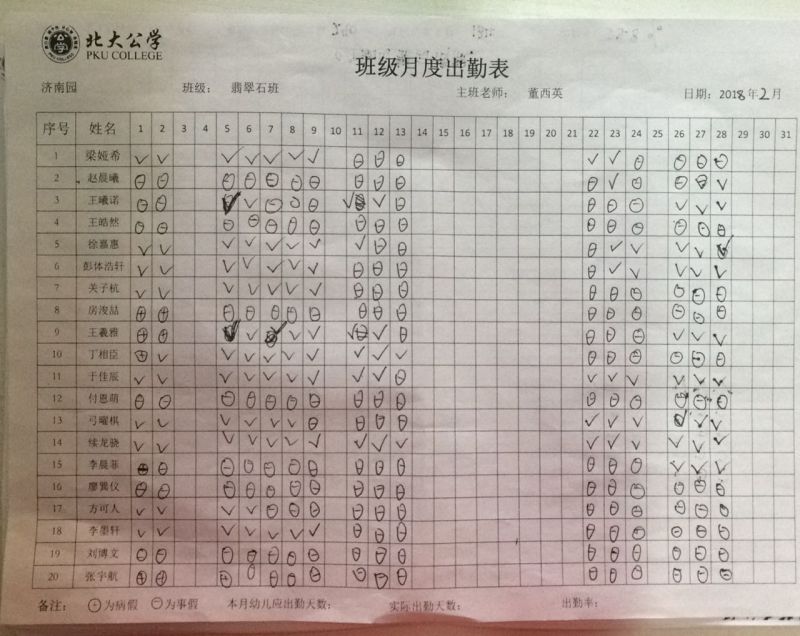 北大公学
PKU COLLEGE
班级月度出勤表
济南园 班级： 翡翠石班 主班老师： 董西英 日期：2018年2月
序号 姓名 1 2 3 4 5 6 7 8 9 10 11 12 13 14 15 16 17 18 19 20 21 22 23 24 25 26 27 28 29 30 31
1 梁娅希
2 赵晨曦
3 王曦诺
4 王皓然
5 徐嘉惠
6 彭体浩轩
7 关子杭
8 房浚喆
9 王羲雅
10 丁相臣
11 于佳辰
12 付恩萌
13 弓曜棋
14 续龙骁
15 李晨菲
16 廖龚仪
17 方可人
18 李墨轩
19 刘博文
20 张宇航
备注： ⊕为病假 ⊖为事假 本月幼儿应出勤天数： 实际出勤天数： 出勤率：